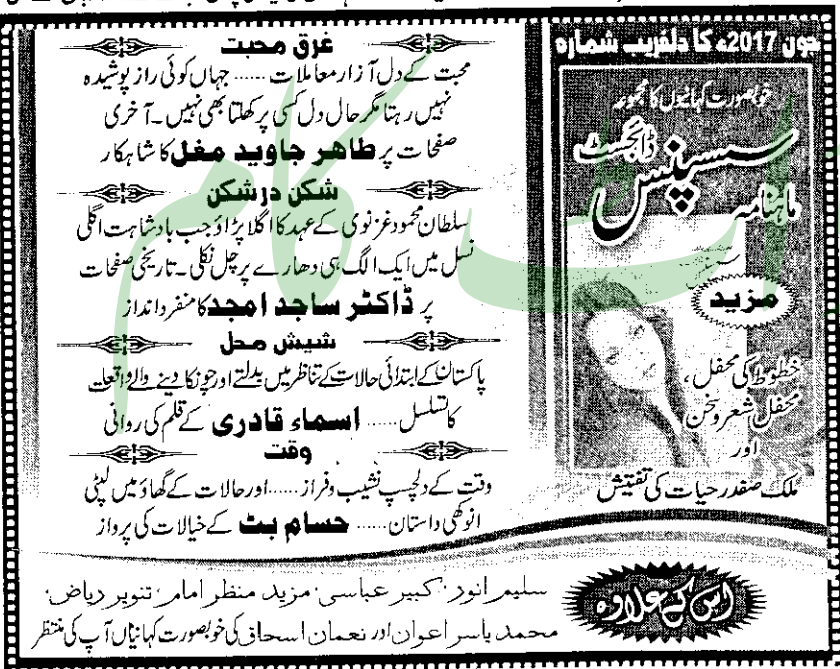 جون 2017ء کا دلفریب شمارہ
خوبصورت کہانیوں کا مجموعہ
ماہنامہ سسپنس ڈائجسٹ
مزید
خطوط کی محفل،
محفل شعر و سخن
اور
ملک صفدر حیات کی تفتیش
غرق محبت
محبت کے دل آزار معاملات ...... جہاں کوئی راز پوشیدہ
نہیں رہتا مگر حال دل کسی پر کھلتا بھی نہیں۔ آخری
صفحات پر طاہر جاوید مغل کا شاہکار
شکن در شکن
سلطان محمود غزنوی کے عہد کا اگلا پڑاؤ جب بادشاہت اگلی
نسل میں ایک الگ ہی دھارے پر چل نکلی۔ تاریخی صفحات
پر ڈاکٹر ساجد امجد کا منفرد انداز
شیش محل
پاکستان کے ابتدائی حالات کے تناظر میں بدلتے اور چونکا دینے والے واقعات
کا تسلسل ...... اسماء قادری کے قلم کی روانی
وقت
وقت کے دلچسپ نشیب و فراز ...... اور حالات کے گھاؤ میں لپٹی
انوکھی داستان ...... حسام بٹ کے خیالات کی پرواز
اس کے علاوہ
سلیم انور، کبیر عباسی، مزید منظر امام، تنویر ریاض،
محمد یاسر اعوان اور نعمان اسحاق کی خوبصورت کہانیاں آپ کی منتظر